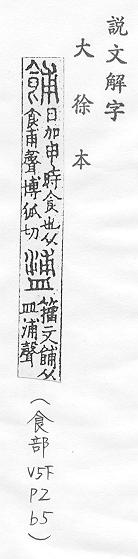 説文解字
大徐本
餔日加申時食也从食甫聲博狐切𥂈籒文餔从皿浦聲
(食部V5下P2b5)